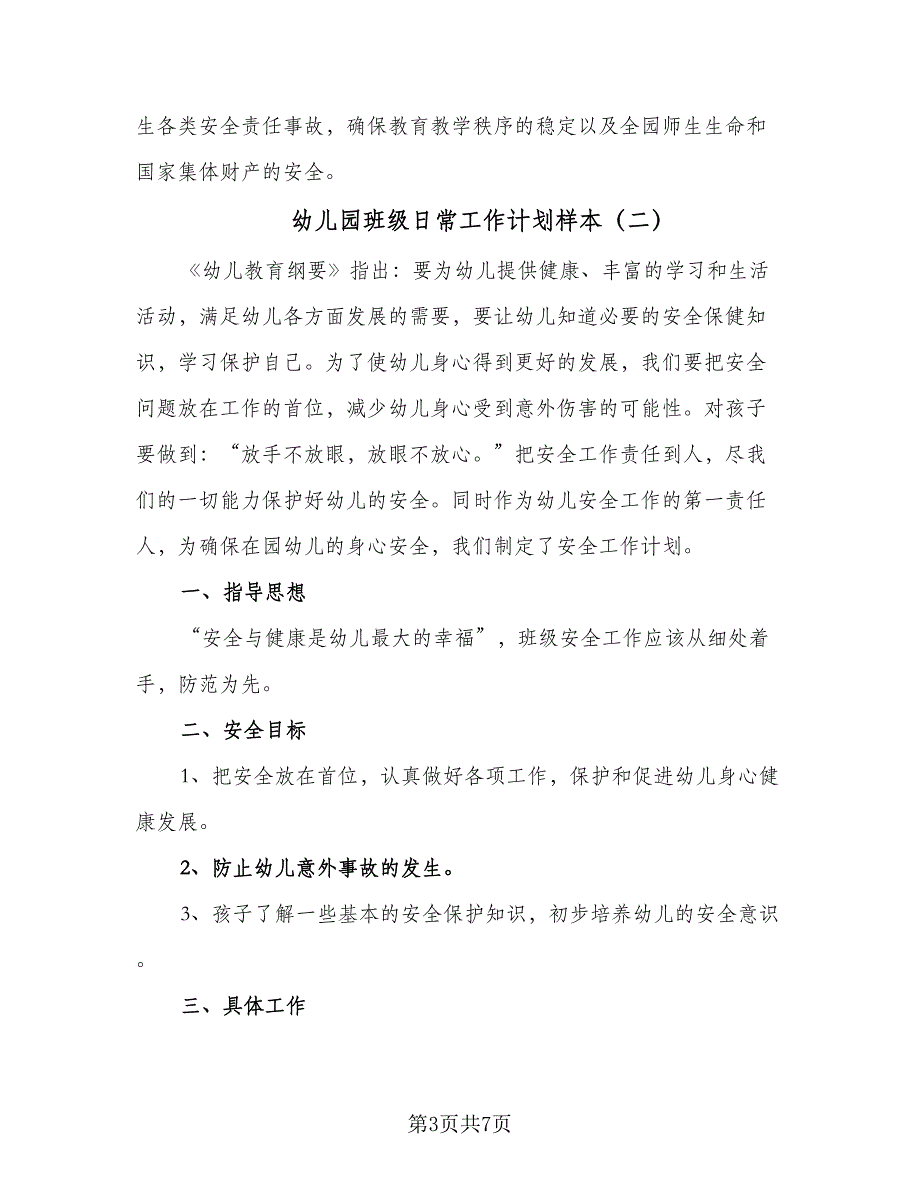 生各类安全责任事故，确保教育教学秩序的稳定以及全园师生生命和
国家集体财产的安全。
幼儿园班级日常工作计划样本（二）
《幼儿教育纲要》指出：要为幼儿提供健康、丰富的学习和生活
活动，满足幼儿各方面发展的需要，要让幼儿知道必要的安全保健知
识，学习保护自己。为了使幼儿身心得到更好的发展，我们要把安全
问题放在工作的首位，减少幼儿身心受到意外伤害的可能性。对孩子
要做到：“放手不放眼，放眼不放心。”把安全工作责任到人，尽我
们的一切能力保护好幼儿的安全。同时作为幼儿安全工作的第一责任
人，为确保在园幼儿的身心安全，我们制定了安全工作计划。
一、指导思想
“安全与健康是幼儿最大的幸福”，班级安全工作应该从细处着
手，防范为先。
二、安全目标
1、把安全放在首位，认真做好各项工作，保护和促进幼儿身心健
康发展。
2、防止幼儿意外事故的发生。
3、孩子了解一些基本的安全保护知识，初步培养幼儿的安全意识
。
三、具体工作
第3页共7页